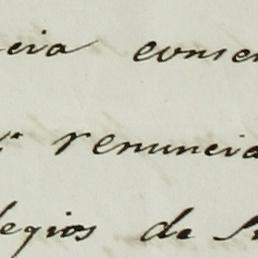 cia conse
renuncia
legios de